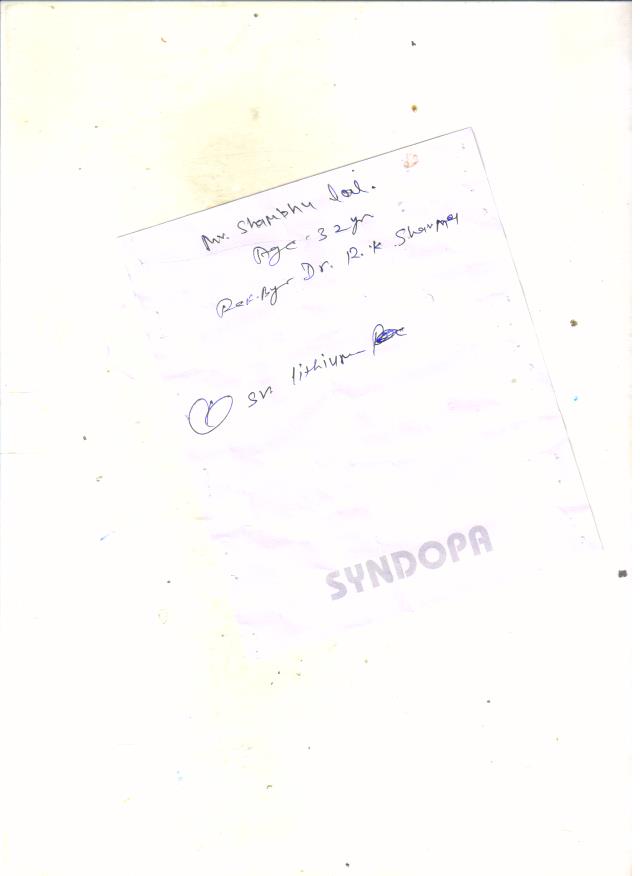 Mr. Shambhu Lal.
Age - 32 yr
Ref. By Dr. R. K Sharma
① Sr. lithium
SYNDOPA